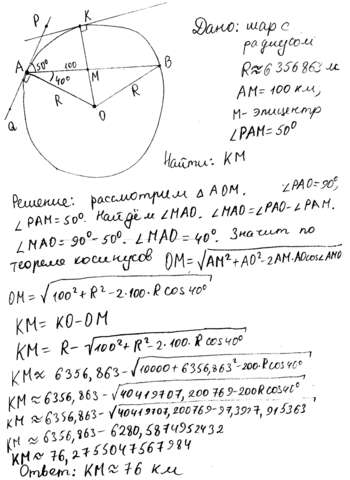 P
K
A
50°
100
M
B
40°
R
R
O
Q
Дано: шар с
радиусом
R≈6356863м
AM=100км,
M-эпицентр
∠PAM=50°
Найти: KM
Решение: рассмотрим △AOM. ∠PAO=90°,
∠PAM=50°. Найдём ∠MAO. ∠MAO=∠PAO-∠PAM.
∠MAO=90°-50°. ∠MAO=40°. Значит по
теореме косинусов OM=√AM²+AO²-2AM·AOcos∠AMO
OM=√100²+R²-2·100·Rcos40°
KM=KO-OM
KM=R-√100²+R²-2·100·Rcos40°
KM≈6356,863-√10000+6356,863²-200·Rcos40°
KM≈6356,863-√40419707,200769-200Rcos40°
KM≈6356,863-√40419707,200769-97,3927,915363
KM≈6356,863-6280,5874952432
KM≈76,2755047567984
Ответ: KM≈76 км